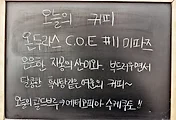 오늘의 커피
온두라스 C.O.E #11 미파즈
은은한 자몽의 산미와 부드러우면서
달콤한 흑설탕같은 여운의 커피~
오늘의 콜드브루 에티오피아 수케쿠토!!